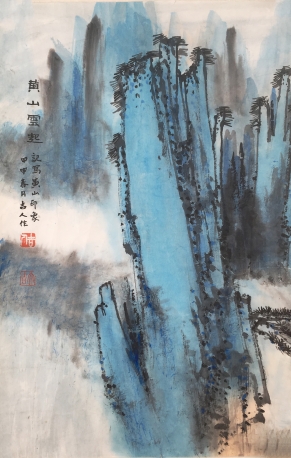 黄山雲起
記寫黄山印象
甲申春月古人作